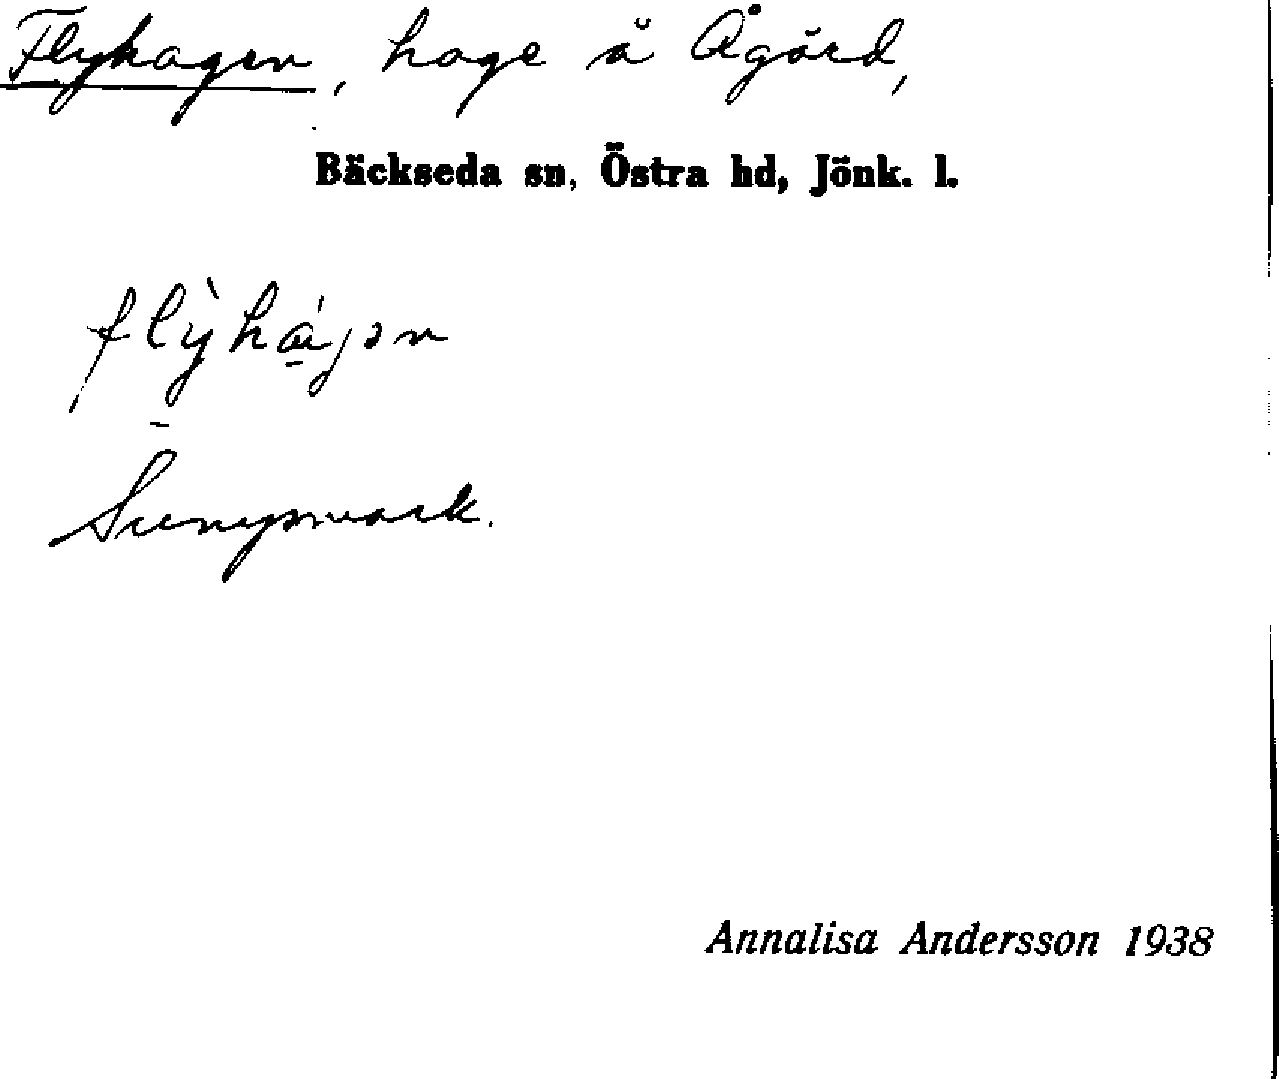 Flyhagen, hage å Ågård,
Bäckseda sn, Östra hd, Jönk. l.
flỳhágən
Sumpmark.
Annalisa Andersson 1938